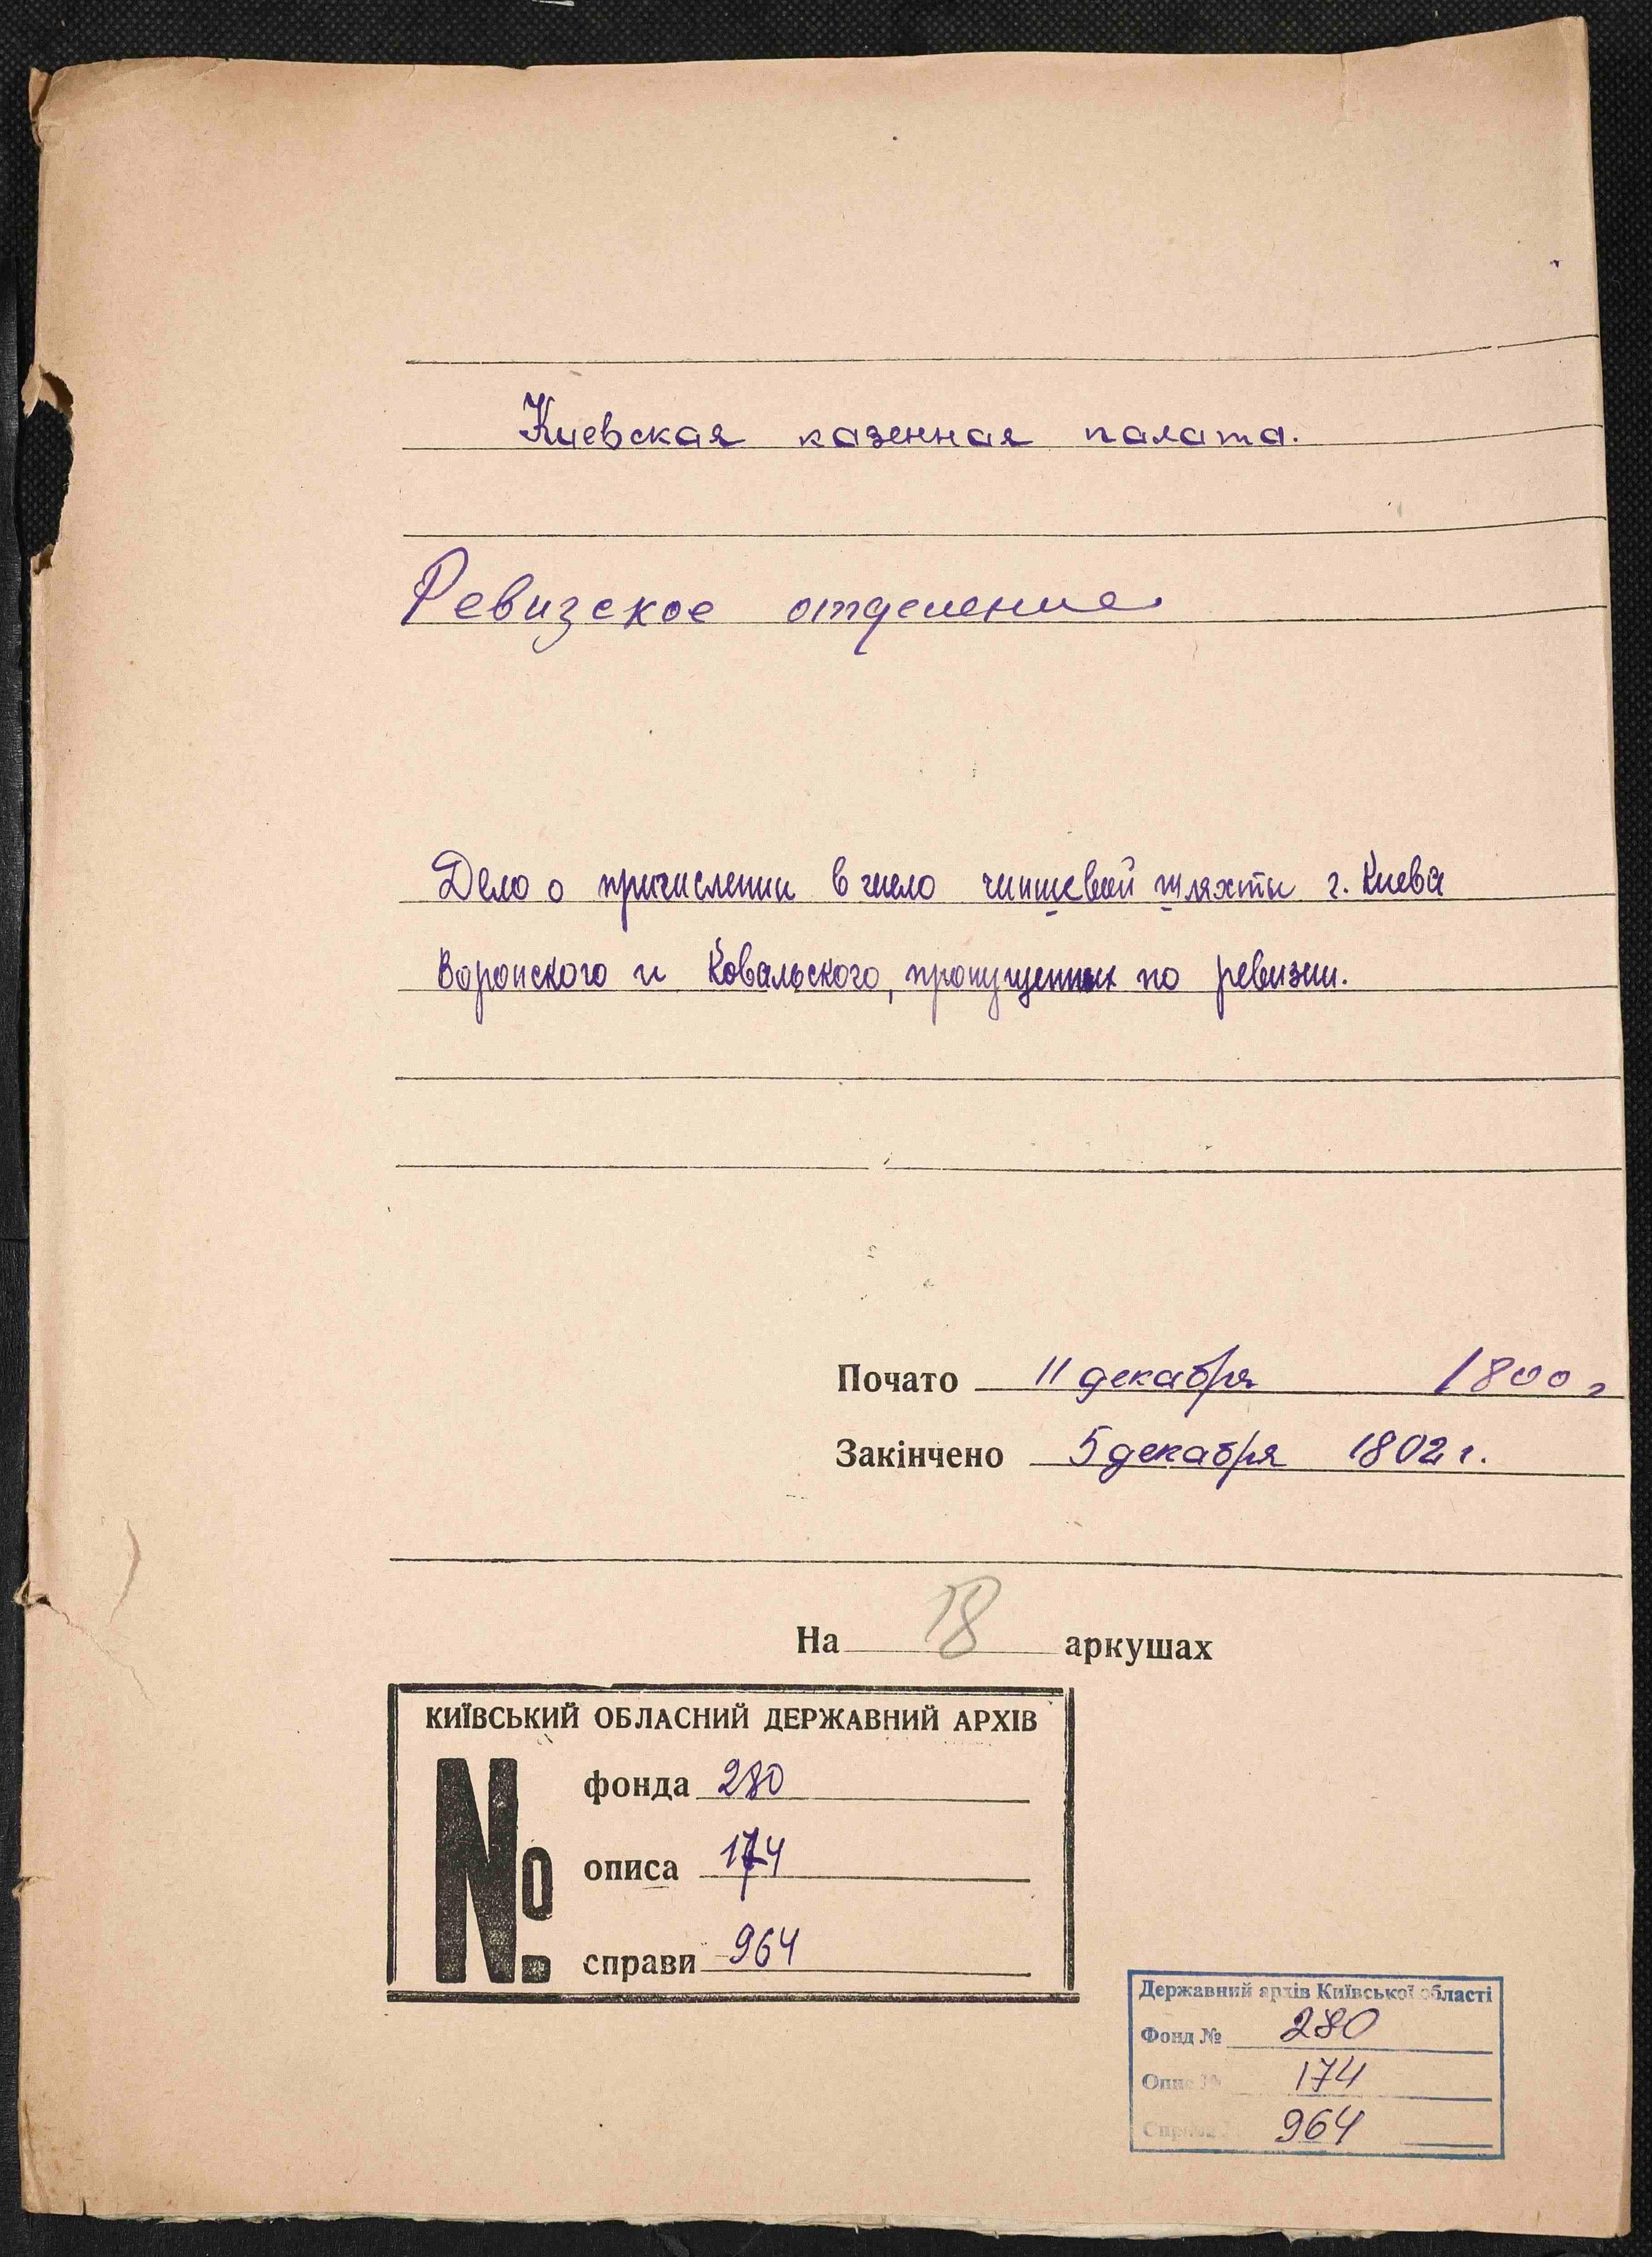 Киевская казенная палата.
Ревизское отделение
Дело о причислении в число чиншевой шляхты г. Киева
Воронского и Ковальского, пропущенных по ревизии.
Почато 11 декабря 1800 г
Закінчено 5 декабря 1802 г.
На 18 аркушах
КИЇВСЬКИЙ ОБЛАСНИЙ ДЕРЖАВНИЙ АРХІВ
№
фонда 280
описа 174
справи 964
Державний архів Київської області
Фонд № 280
Опис № 174
Справа № 964